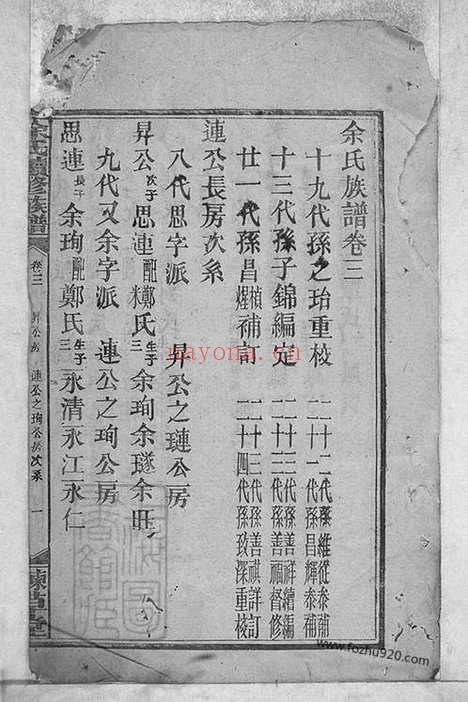 余氏族譜卷三
十九代孫之珆重校 二十二代孫維從泰補
二十一代孫昌輝泰補
十三代孫子錦編定 二十三代孫善祥續編
二十三代孫善福督修
廿一代孫昌禎煋補訂 二十三代孫善祺詳訂
二十四代孫致深重校
連公長房次系
八代思字派 昇公之璉公房
昇公次子思連配糕氏生子三余珣余璲余旺
九代又余字派 連公之珣公房
思連長子余珣配鄭氏生子三永清永江永仁
余氏續修族譜 卷三 昇公房 連公之珣公房次系 一
nayona.cn
www.fozhu920.com